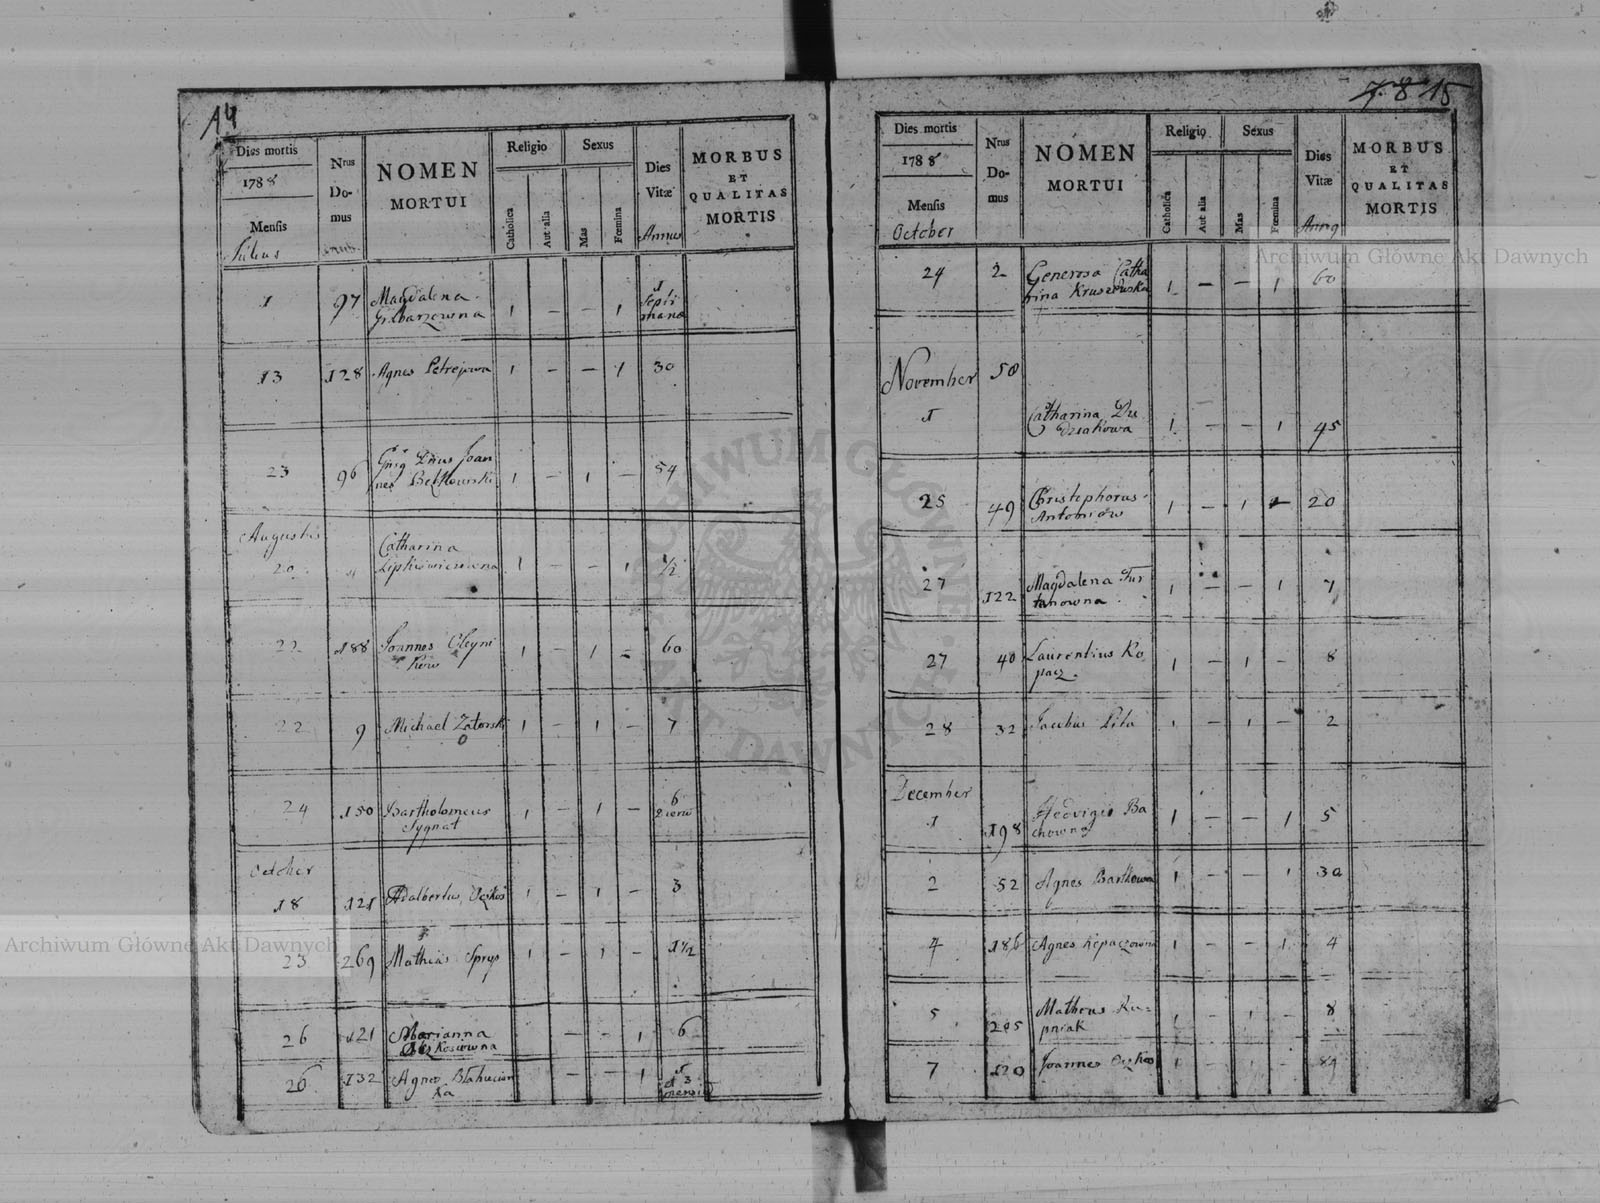 14
Dies mortis
1788
Mensis
Julius
Nrus
Do-
mus
NOMEN
MORTUI
Religio
Catholica
Aut alia
Sexus
Mas
Fœmina
Dies
Vitæ
Annus
MORBUS
ET
QUALITAS
MORTIS
1 97 Magdalena 1 - - 1 1 Septi
mana
13 128 Agnes Petrejowa 1 - - 1 30
23 96 Joan
nes 1 - 1 - 54
Augustus
20 " Catharina
Lipkiewiczowna 1 - - 1 1/2
22 188 Joannes Oleyni
kow 1 - 1 - 60
22 9 Michael Zatorski 1 - 1 - 7
24 150 Bartholomeus
Sygnat 1 - 1 - 6
October
18 121 Adalbertus 1 - 1 - 3
23 269 Mathias Sprys 1 - 1 - 1 1/2
26 121 Marianna - - 1 6
26 132 Agnes
ka - - 1 1
et 3
mensiu
7 8 15
Dies mortis
1788
Mensis
October
Nrus
Do-
mus
NOMEN
MORTUI
Religio
Catholica
Aut alia
Sexus
Mas
Fœmina
Dies
Vitæ
Anno
MORBUS
ET
QUALITAS
MORTIS
24 2 Generosa Catha
rina Kruszewska 1 - - 1 60
November 50
1 Catharina Du
dziakowa 1 - - 1 45
25 49 Christophorus
Antoniow 1 - 1 - 20
27 122 Magdalena Fur
tanowna 1 - - 1 7
27 40 Laurentius Ko
pacz 1 - 1 - 8
28 32 Jacobus Pita 1 - 1 - 2
December
1 198 Hedvigis Ba
chowna 1 - - 1 5
2 52 Agnes Bartkowa 1 - - 1 30
4 186 Agnes Kopaczowna 1 - - 1 4
5 205 Matheus Ku=
pniak 1 - 1 - 8
7 120 Joannes 1 - 1 -
Archiwum Główne Akt Dawnych
Archiwum Główne Akt Dawnych
ARCHIWUM GŁÓWNE AKT DAWNYCH